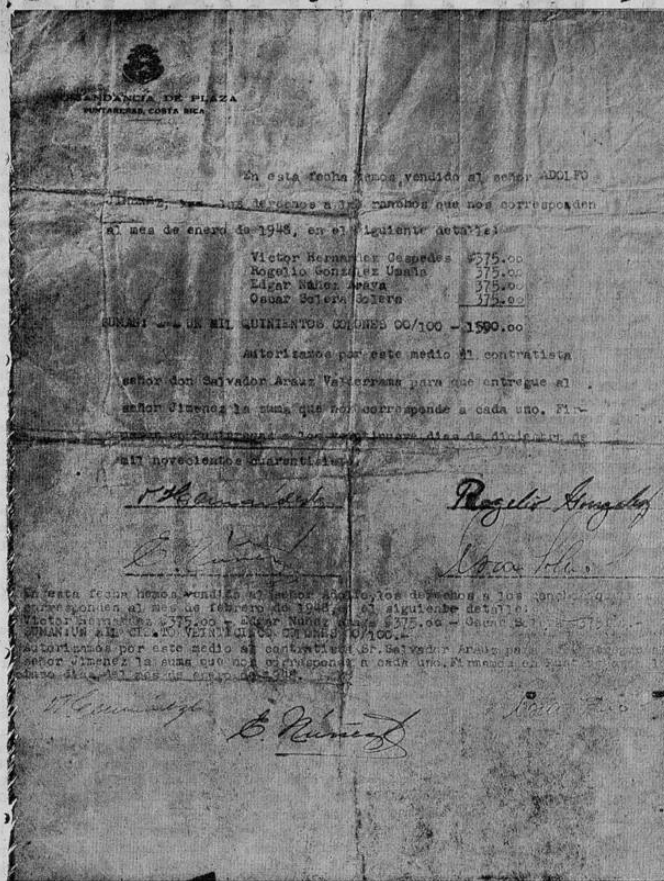 COMANDANCIA DE PLAZA
PUNTARENAS, COSTA RICA
En esta fecha hemos vendido al señor ADOLFO
JIMENEZ, los derechos a los ranchos que nos corresponden
al mes de enero de 1948, en el siguiente detalle:
Victor Hernandez Cespedes ₡375.00
Rogelio Gonzalez Umaña 375.00
Edgar Nuñez Araya 375.00
Oscar Solera Solera 375.00
SUMAN: UN MIL QUINIENTOS COLONES 00/100 - 1500.00
Autorizamos por este medio al contratista
señor don Salvador Arauz Valderrama para que entregue al
señor Jimenez la suma que nos corresponde a cada uno. Fir-
mamos en Puntarenas a los veintinueve dias de diciembre de
mil novecientos cuarentisiete.
Rogelio Gonzalez
E. Nuñez
En esta fecha hemos vendido al señor Adolfo, los derechos a los
corresponden al mes de febrero de 1948, en el siguiente detalle:
Victor Hernandez ₡375.00 - Edgar Nuñez ₡375.00 - Oscar
SUMAN: UN MIL CIENTO VEINTICINCO COLONES 00/100.-
Autorizamos por este medio al contratista Sr. Salvador Arauz para
señor Jimenez la suma que nos corresponde a cada uno. Firmamos en
dias del mes de enero de 1948.
E. Nuñez